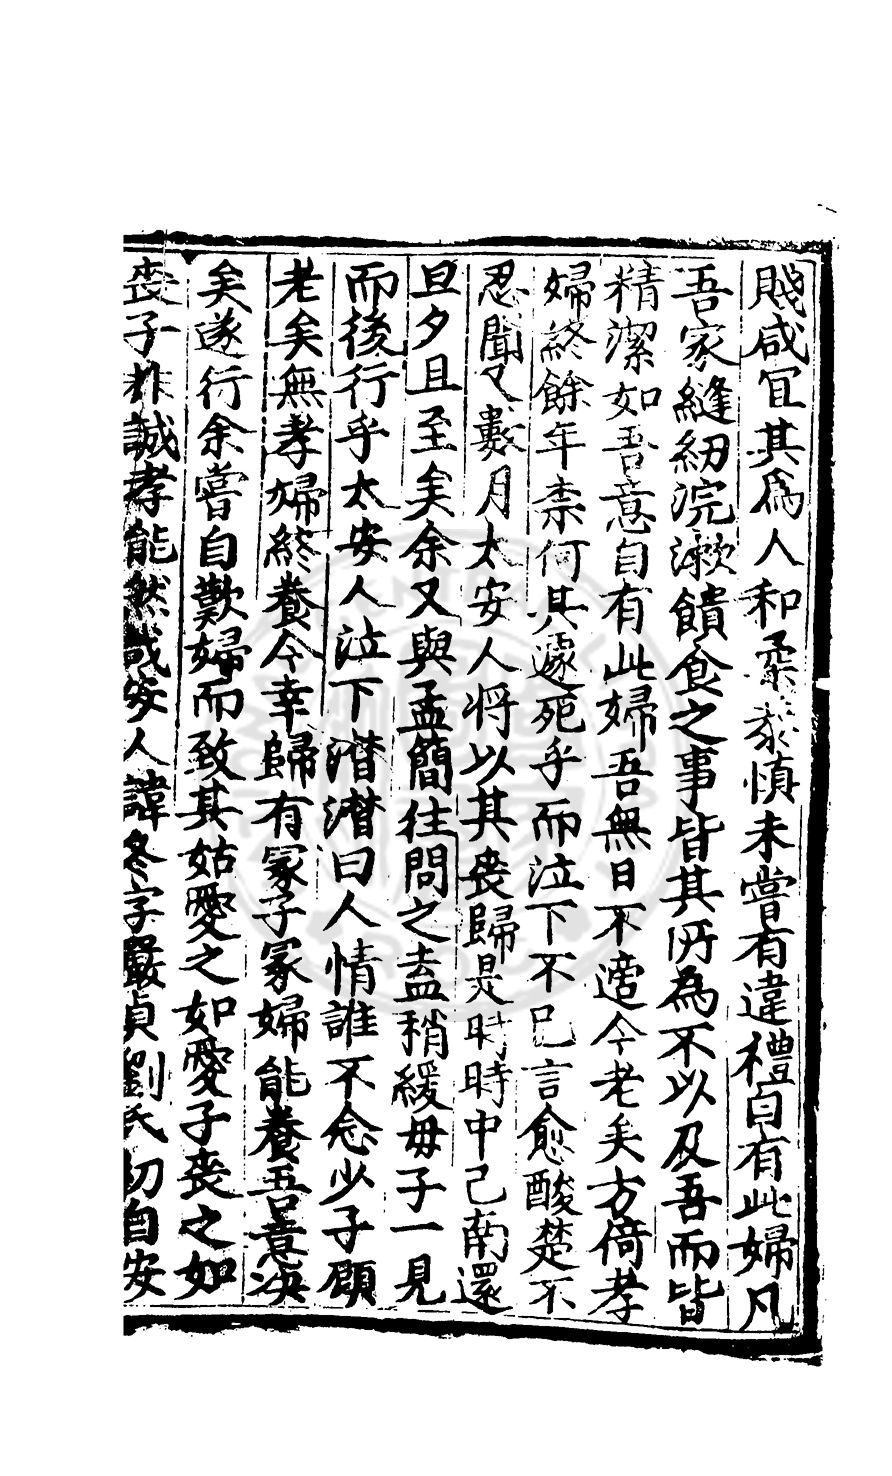 賤咸宜其為人和柔恭慎未嘗有違禮自有此婦凡
吾家縫紉浣漱饋食之事皆其所為不以及吾而皆
精潔如吾意自有此婦吾無日不適今老矣方倚孝
婦終餘年柰何其遽死乎而泣下不已言愈酸楚不
忍聞又數月太安人將以其喪歸是時時中已南還
旦夕且至矣余又與孟簡往問之盍稍緩毋子一見
而後行乎太安人泣下潸潸曰人情誰不念少子顧
老矣無孝婦終養今幸歸有冢子冢婦能養吾意决
矣遂行余嘗自歎婦而致其姑愛之如愛子喪之如
喪子非誠孝能然哉安人諱冬字嚴貞劉氏切自安